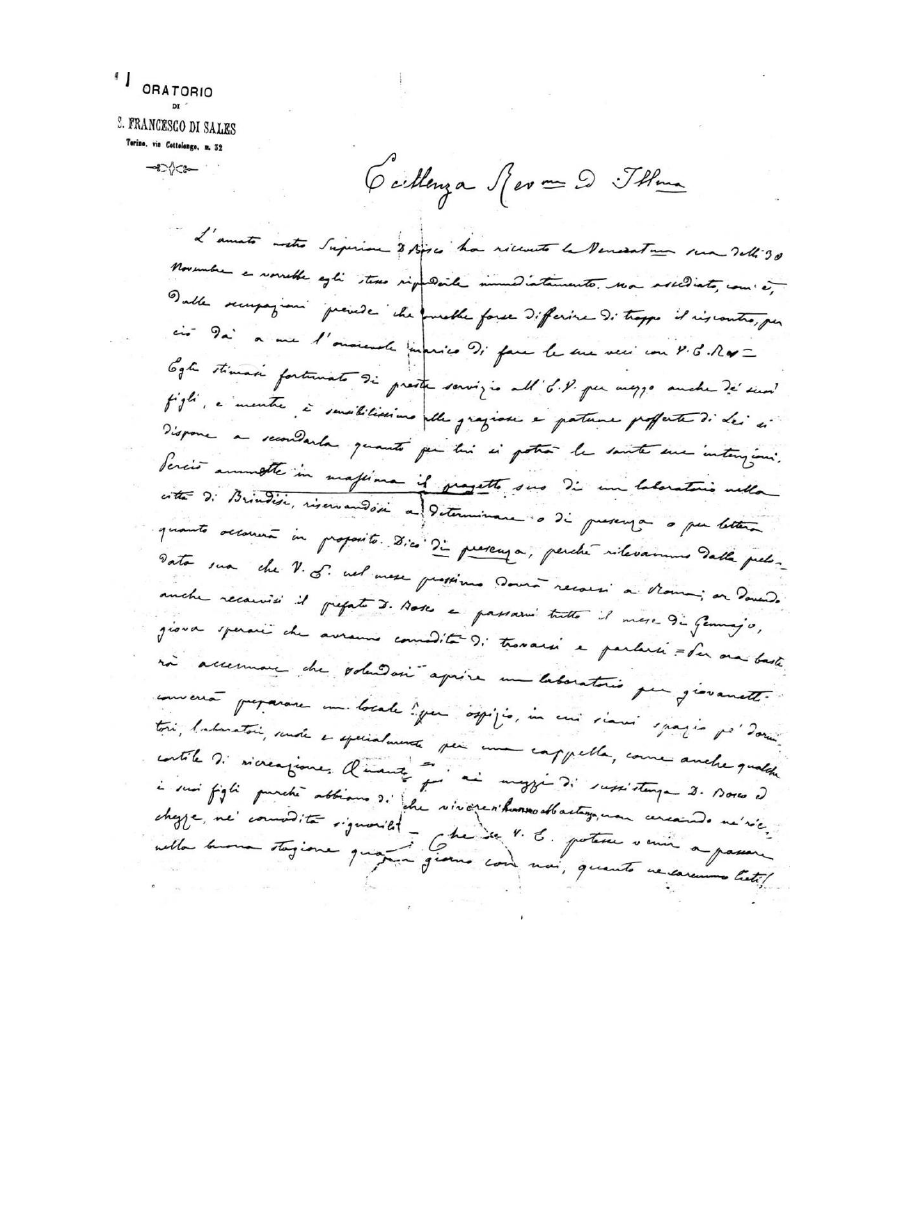 ORATORIO
DI
S. FRANCESCO DI SALES
Torino, via Cottolengo, n. 32
Eccellenza Rev.ma ed Ill.ma
L'amato nostro Superiore D. Bosco ha ricevuto la Venerat.ma sua delli 30
Novembre e vorrebbe egli stesso risponderle immediatamente. Ma assediato, com'è,
dalle occupazioni prevede che dovrebbe forse differire di troppo il riscontro, per
ciò dà a me l'onorevole incarico di fare le sue veci con V. E. Rev=
Egli stimasi fortunato di prestar servizio all'E. V. per mezzo anche de' suoi
figli, e mentre è sensibilissimo alle graziose e paterne profferte di Lei si
dispone a secondarla quanto per lui si potrà le sante sue intenzioni.
Perciò ammette in massima il progetto suo di un laboratorio nella
città di Brindisi, riservandosi a determinare o di presenza o per lettera
quanto occorrerà in proposito. Dico di presenza, perchè rilevammo dalla prelo-
data sua che V. E. nel mese prossimo dovrà recarsi a Roma; or dovendo
anche recarvisi il prefato D. Bosco e passarvi tutto il mese di Gennajo,
giova sperare che avranno comodità di trovarsi e parlarsi = Per ora baste
rà accennare che volendosi aprire un laboratorio per giovanett-
converrà preparare un locale per ospizio, in cui siavi spazio pe' dormi
tori, laboratori, scuole e specialmente per una cappella, come anche qualche
cortile di ricreazione. Quanto poi ai mezzi di sussistenza D. Bosco ed
i suoi figli purchè abbiano di che vivere n'hanno abbastanza, non cercando nè ric-
chezze, nè comodità signorili - Che se V. E. potesse venir a passare
nella buona stagione qualche giorno con noi, quanto ne saremmo lieti!